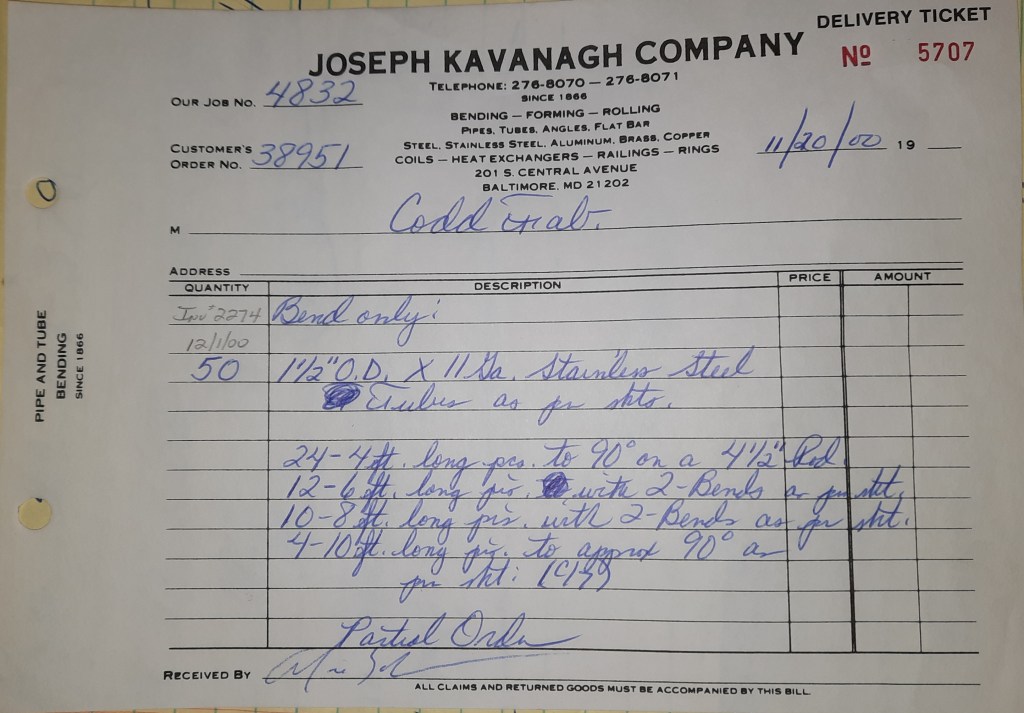 DELIVERY TICKET
JOSEPH KAVANAGH COMPANY
Nº 5707
TELEPHONE: 276-8070 — 276-8071
SINCE 1866
OUR JOB NO. 4832
BENDING — FORMING — ROLLING
PIPES, TUBES, ANGLES, FLAT BAR
STEEL, STAINLESS STEEL, ALUMINUM, BRASS, COPPER
CUSTOMER'S
ORDER NO. 38951
COILS — HEAT EXCHANGERS — RAILINGS — RINGS
11/20/00 19
201 S. CENTRAL AVENUE
BALTIMORE, MD 21202
M Codd Fab.
ADDRESS
QUANTITY DESCRIPTION PRICE AMOUNT
Inv # 2274 Bend only:
12/1/00
50 1 1/2" O.D. X 11 Ga. Stainless Steel
Tubes as per skts.
24-4 ft. long pcs. to 90° on a 4 1/2" Rad.
12-6 ft. long pcs. with 2-Bends as per skt.
10-8 ft. long pcs. with 2-Bends as per skt.
4-10 ft. long pcs. to approx 90° as
per skt:
Partial Order
RECEIVED BY
ALL CLAIMS AND RETURNED GOODS MUST BE ACCOMPANIED BY THIS BILL.
PIPE AND TUBE
BENDING
SINCE 1866